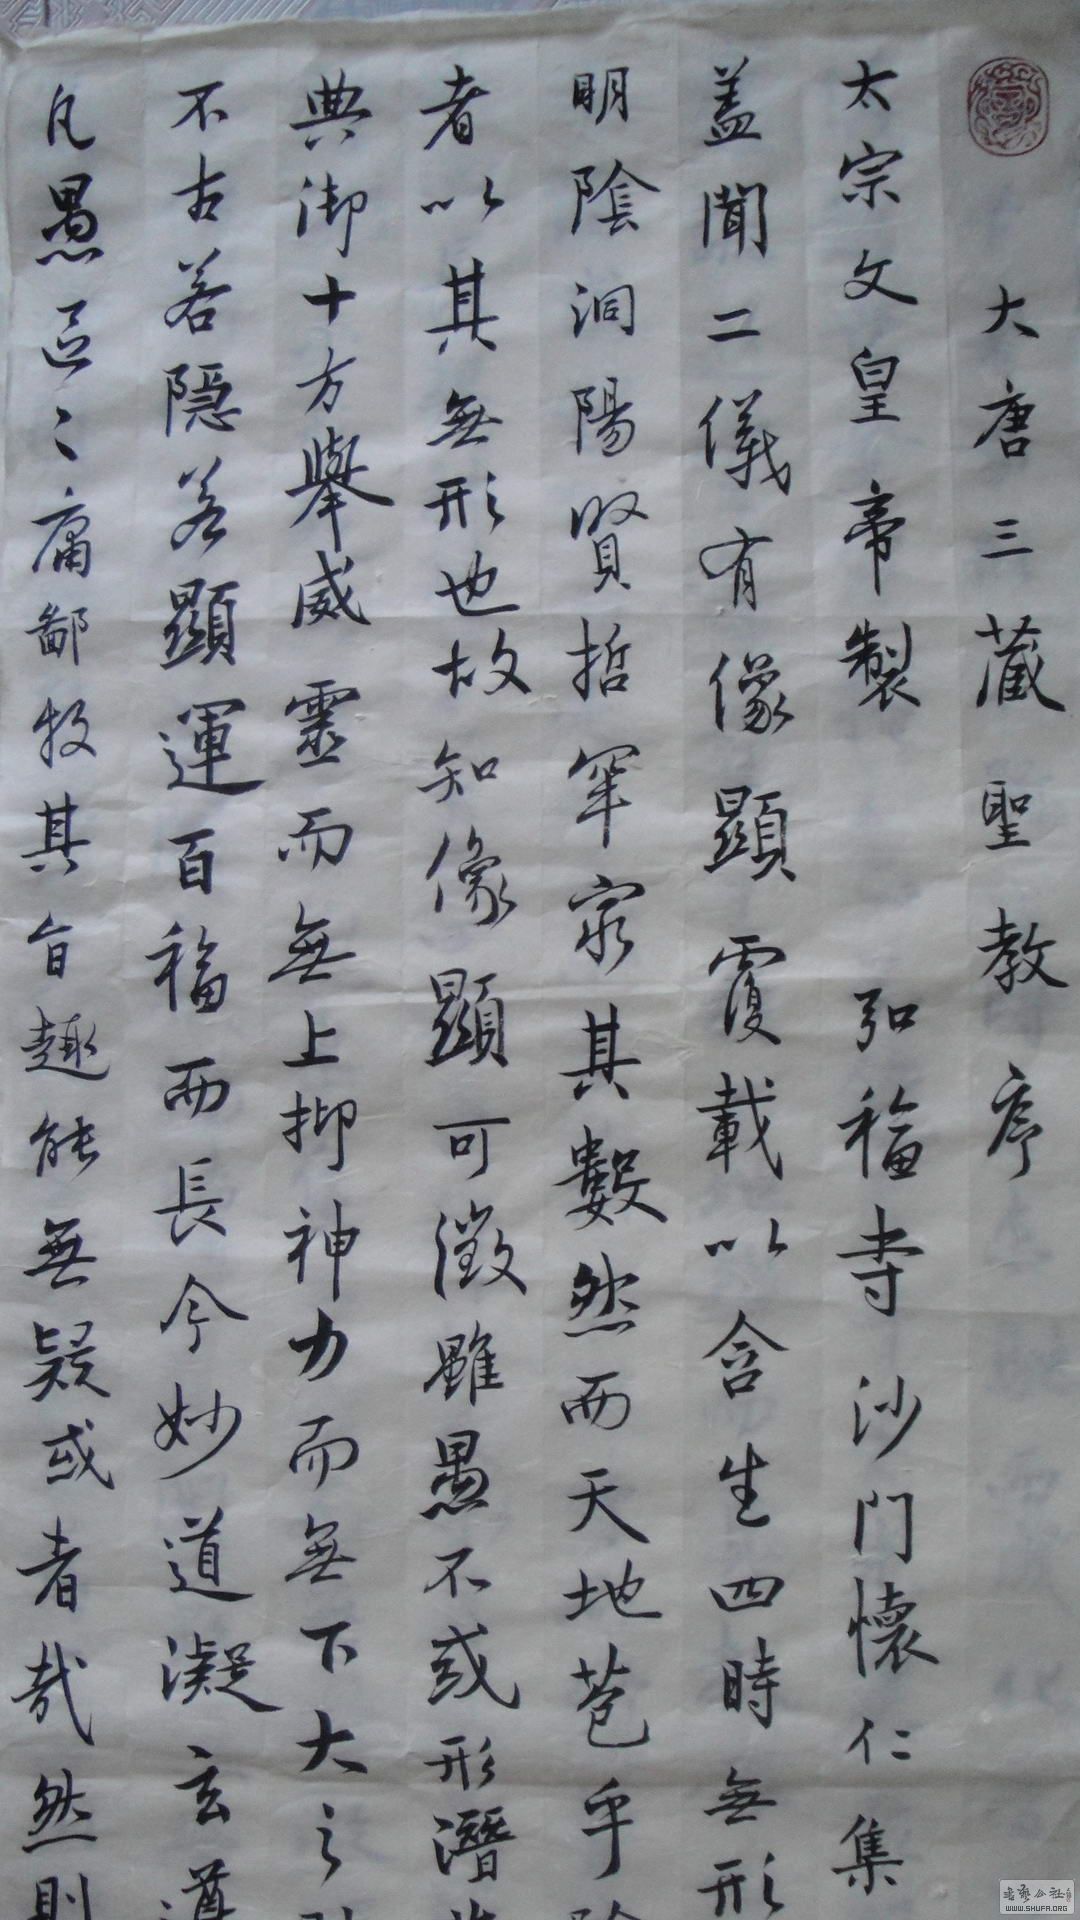 大唐三藏聖教序
太宗文皇帝製 弘福寺沙門懷仁集
盖聞二儀有像顯覆載以含生四時無形
明陰洞陽賢哲罕窮其數然而天地苞乎陰
者以其無形也故知像顯可徵雖愚不或形潛
典御十方舉威靈而無上抑神力而無下大之
不古若隱若顯運百福而長今妙道凝玄遵
凡愚區〻庸鄙投其旨趣能無疑或者哉然則
WWW.SHUFA.ORG